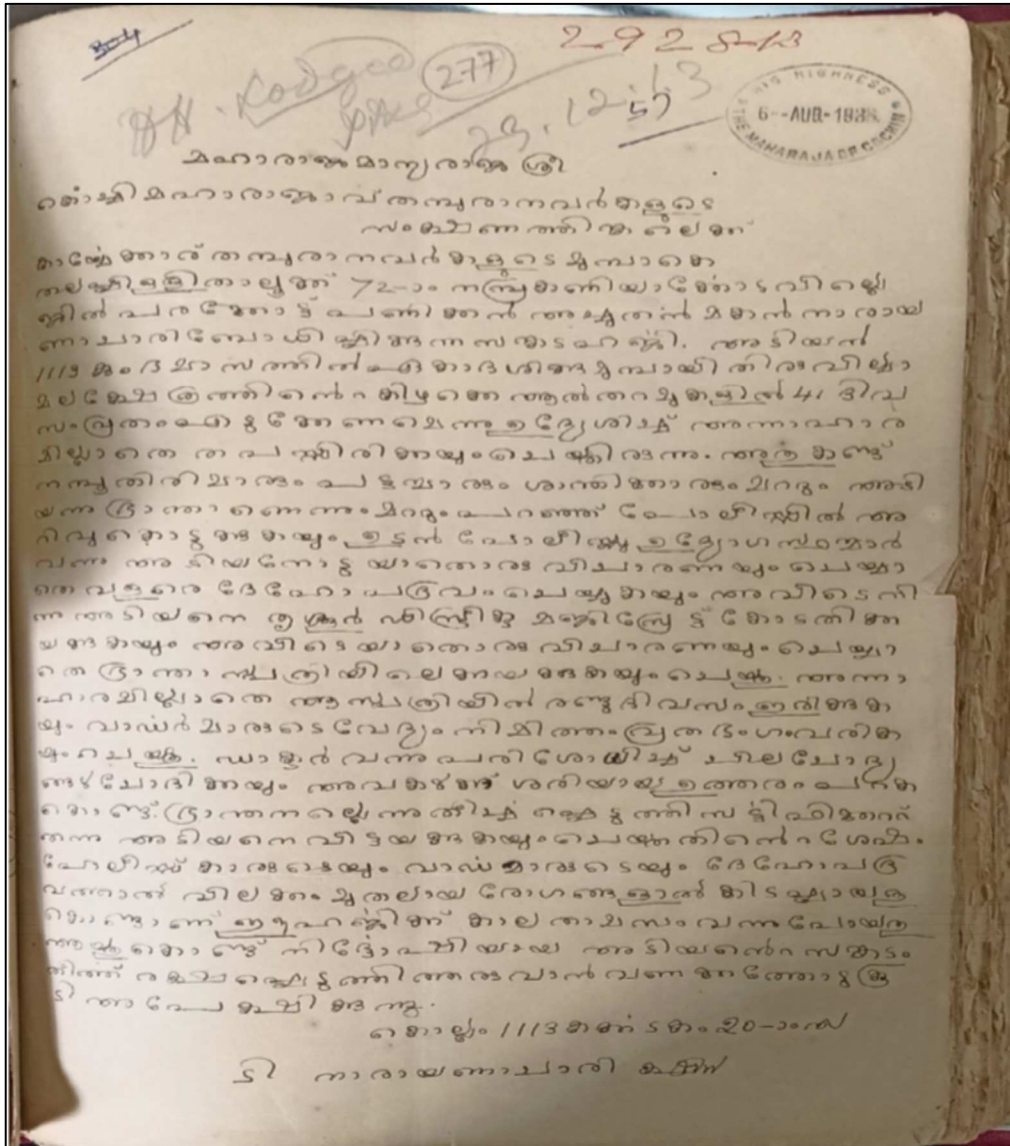 304
2928-13
277
29.12.13
57
HIS HIGHNESS
6-AUG-1938
THE MAHARAJA OF COCHIN
മഹാരാജമാന്യരാജശ്രീ
കൊച്ചിമഹാരാജാവ് തമ്പുരാനവർകളുടെ
സംക്ഷണത്തിങ്കലെക്ക്
തമ്പുരാനവർകളുടെ മുമ്പാകെ
തലപ്പിള്ളിതാലൂക്ക് 72-ാം നമ്പ്ര കണിയാർകോട വില്ലെ
ജിൽ പരക്കോട്ട് പണിക്കൻ അച്ചുതൻ മകൻ നാരായ
ണാചാരിബോധിപ്പിക്കുന്നസങ്കടഹർജി. അടിയൻ
1113 കുംഭമാസത്തിൽ ഏകാദശിക്കുമുമ്പായി തിരുവില്വാ
മലക്ഷേത്രത്തിൻെറ കിഴക്കെ ആൽതറമുകളിൽ 41 ദിവ
സംവ്രതംഎടുക്കേണമെന്നുഉദ്ദ്യേശിച്ച് അന്നാഹാര
മില്ലാതെ തപസ്സിരിക്കയുംചെയ്തിരുന്നു. അതുകണ്ട്
നമ്പൂതിരിമാരും പട്ടന്മാരും ശാന്തിക്കാരുംമറ്റും അടി
യനു ഭ്രാന്താണെന്നും മറ്റുംപറഞ്ഞ് പോലീസ്സിൽ അ
റിവുകൊടുക്കുകയും ഉടൻ പോലീസ്സു ഉദ്യോഗസ്ഥന്മാർ
വന്നു അടിയനോടു യാതൊരു വിചാരണയുംചെയ്യാ
തെ വളരെ ദേഹോപദ്രവംചെയ്യുകയും അവിടെനി
ന്നു അടിയനെ തൃശൂർ ഡിസ്ത്രിക്റ്റു മജിസ്ത്രേട്ട് കോടതിക്ക
യക്കുകയും അവിടെയാതൊരുവിചാരണയുംചെയ്യാ
തെ ഭ്രാന്താസ്പത്രിയിലെക്കയക്കുകയുംചെയ്തു. അന്നാ
ഹാരമില്ലാതെ ആസ്പത്രിയിൽ രണ്ടുദിവസം ഇരിക്കുക
യും വാർഡർമാരുടെ നിമിത്തം വ്രതഭംഗംവരിക
യുംചെയ്തു. ഡാക്ടർ വന്നുപരിശോധിച്ച് ചിലചോദ്യ
ങ്ങൾചോദിക്കയും അവകൾക്ക് ശരിയായ ഉത്തരംപറക
കൊണ്ട് ഭ്രാന്തനല്ലെന്നു സർട്ടിഫിക്കറ്റ്
തന്നു അടിയനെവിട്ടയക്കുകയും ചെയ്തതിൻെറശേഷം
പോലീസ്സ്കാരുടെയും വാർഡർമാരുടെയും ദേഹോപദ്ര
വത്താൽ വിലക്കം മുതലായ രോഗങ്ങളാൽ കിടപ്പായതു
കൊണ്ടാണ് ഈഹർജിക്ക് കാലതാമസംവന്നുപോയതു
ആയതുകൊണ്ട് നിർദ്ദോഷിയായ അടിയൻെറസങ്കടം
തീർത്ത് രക്ഷപ്പെടുത്തിത്തരുവാൻ വണക്കത്തോടുകൂ
ടി അപേക്ഷിക്കുന്നു.
കൊല്ലം 1113 കർക്കടകം 20-ാംനു
ടി നാരായണാചാരി